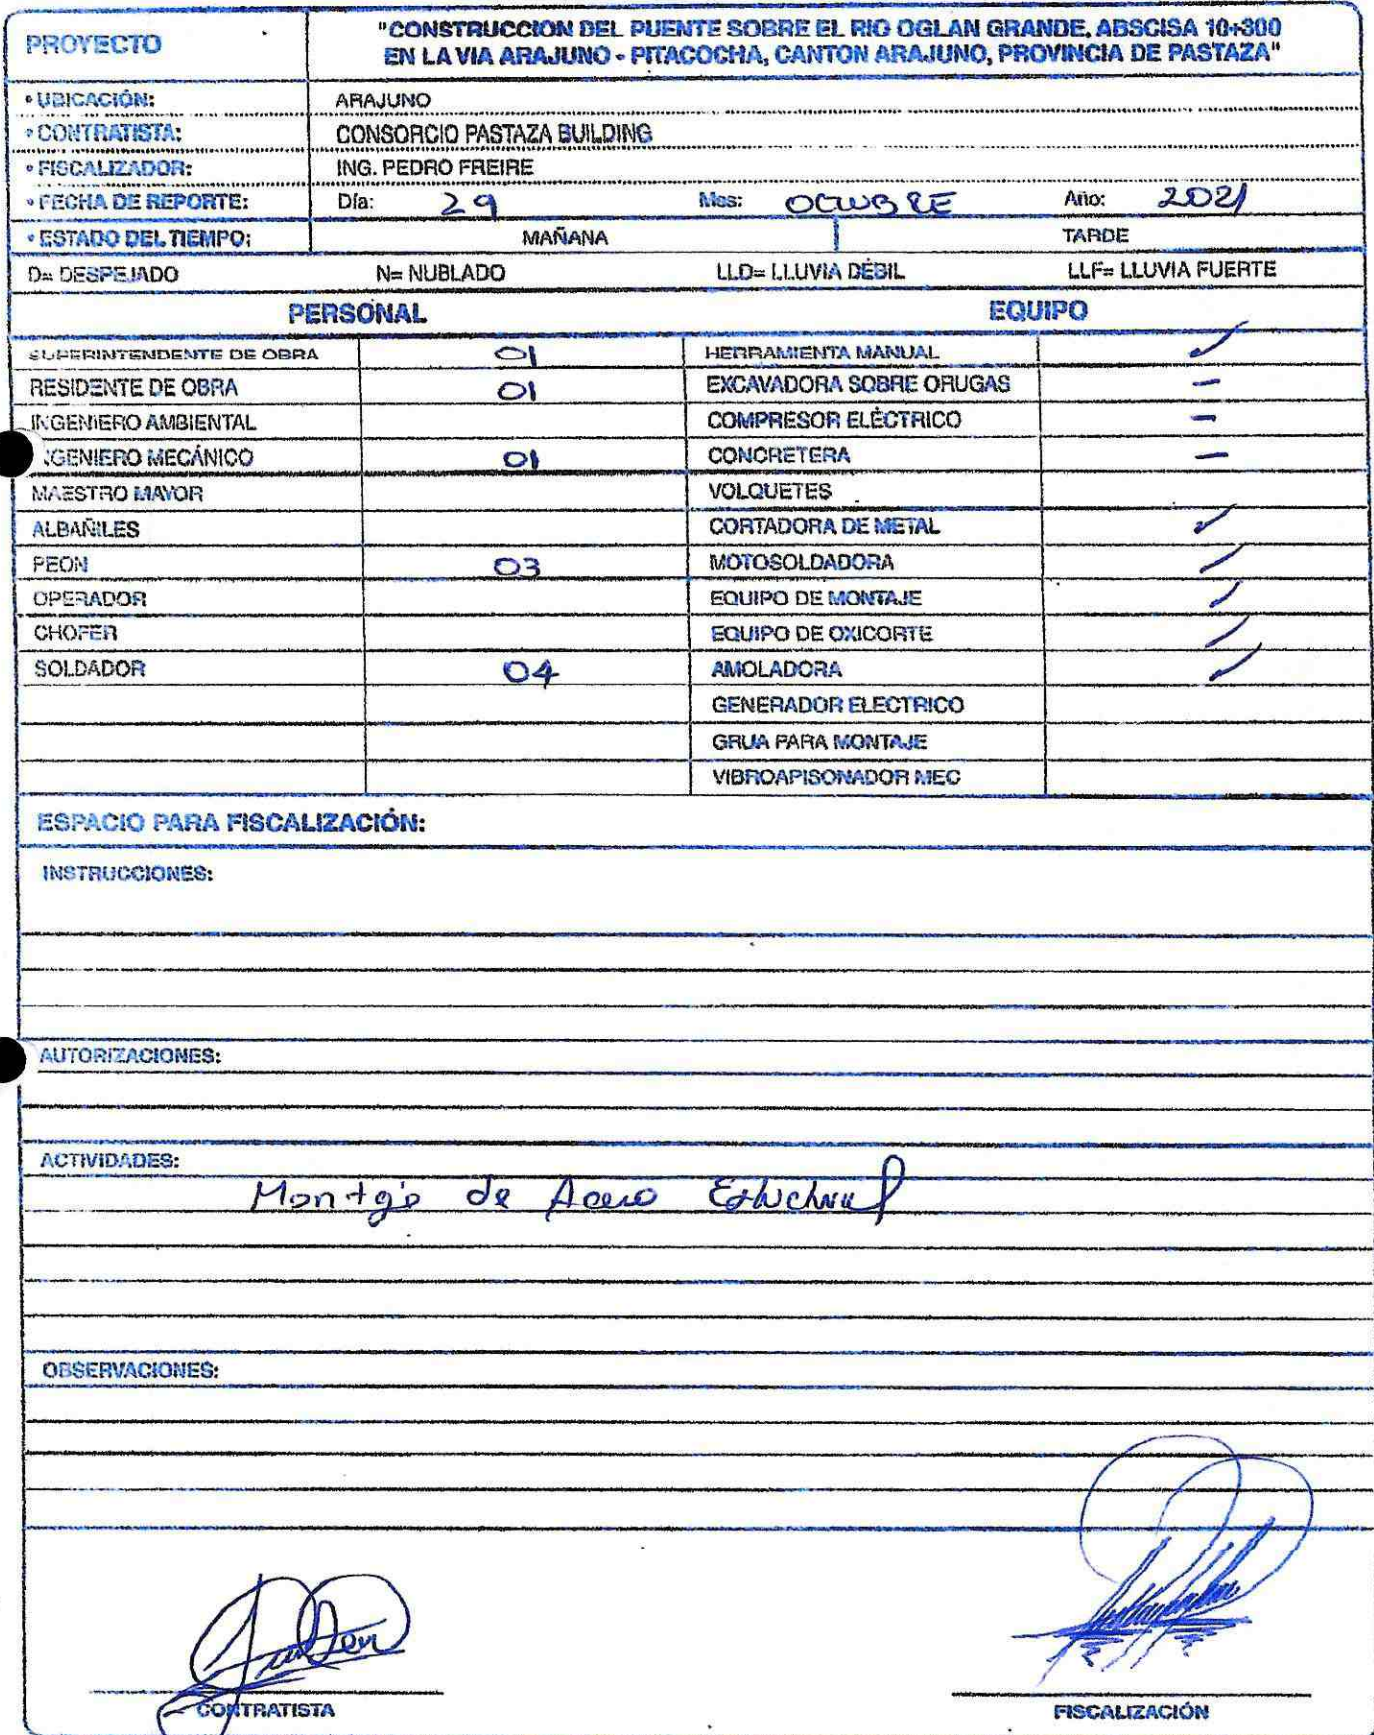 PROYECTO
"CONSTRUCCION DEL PUENTE SOBRE EL RIO OGLAN GRANDE, ABSCISA 10+300
EN LA VIA ARAJUNO - PITACOCHA, CANTON ARAJUNO, PROVINCIA DE PASTAZA"
• UBICACIÓN: ARAJUNO
• CONTRATISTA: CONSORCIO PASTAZA BUILDING
• FISCALIZADOR: ING. PEDRO FREIRE
• FECHA DE REPORTE: Día: 29 Mes: OCTUBRE Año: 2021
• ESTADO DEL TIEMPO: MAÑANA TARDE
D= DESPEJADO N= NUBLADO LLD= LLUVIA DÉBIL LLF= LLUVIA FUERTE
PERSONAL EQUIPO
SUPERINTENDENTE DE OBRA 01 HERRAMIENTA MANUAL ✓
RESIDENTE DE OBRA 01 EXCAVADORA SOBRE ORUGAS –
INGENIERO AMBIENTAL COMPRESOR ELÉCTRICO –
INGENIERO MECÁNICO 01 CONCRETERA –
MAESTRO MAYOR VOLQUETES
ALBAÑILES CORTADORA DE METAL ✓
PEON 03 MOTOSOLDADORA ✓
OPERADOR EQUIPO DE MONTAJE ✓
CHOFER EQUIPO DE OXICORTE ✓
SOLDADOR 04 AMOLADORA ✓
GENERADOR ELECTRICO
GRUA PARA MONTAJE
VIBROAPISONADOR MEC
ESPACIO PARA FISCALIZACIÓN:
INSTRUCCIONES:
AUTORIZACIONES:
ACTIVIDADES:
Montaje de Acero Estructural
OBSERVACIONES:
CONTRATISTA FISCALIZACIÓN